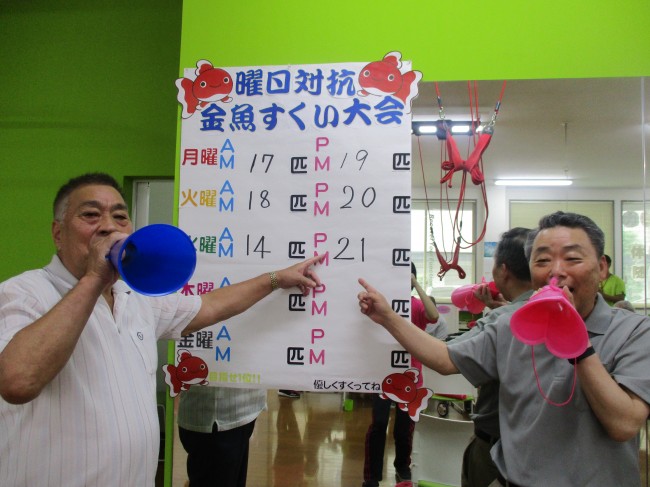 曜日対抗
金魚すくい大会
月曜 AM 17 匹 PM 19 匹
火曜 AM 18 匹 PM 20 匹
水曜 AM 14 匹 PM 21 匹
木曜 匹 PM 匹
金曜 AM 匹 PM 匹
優しくすくってね